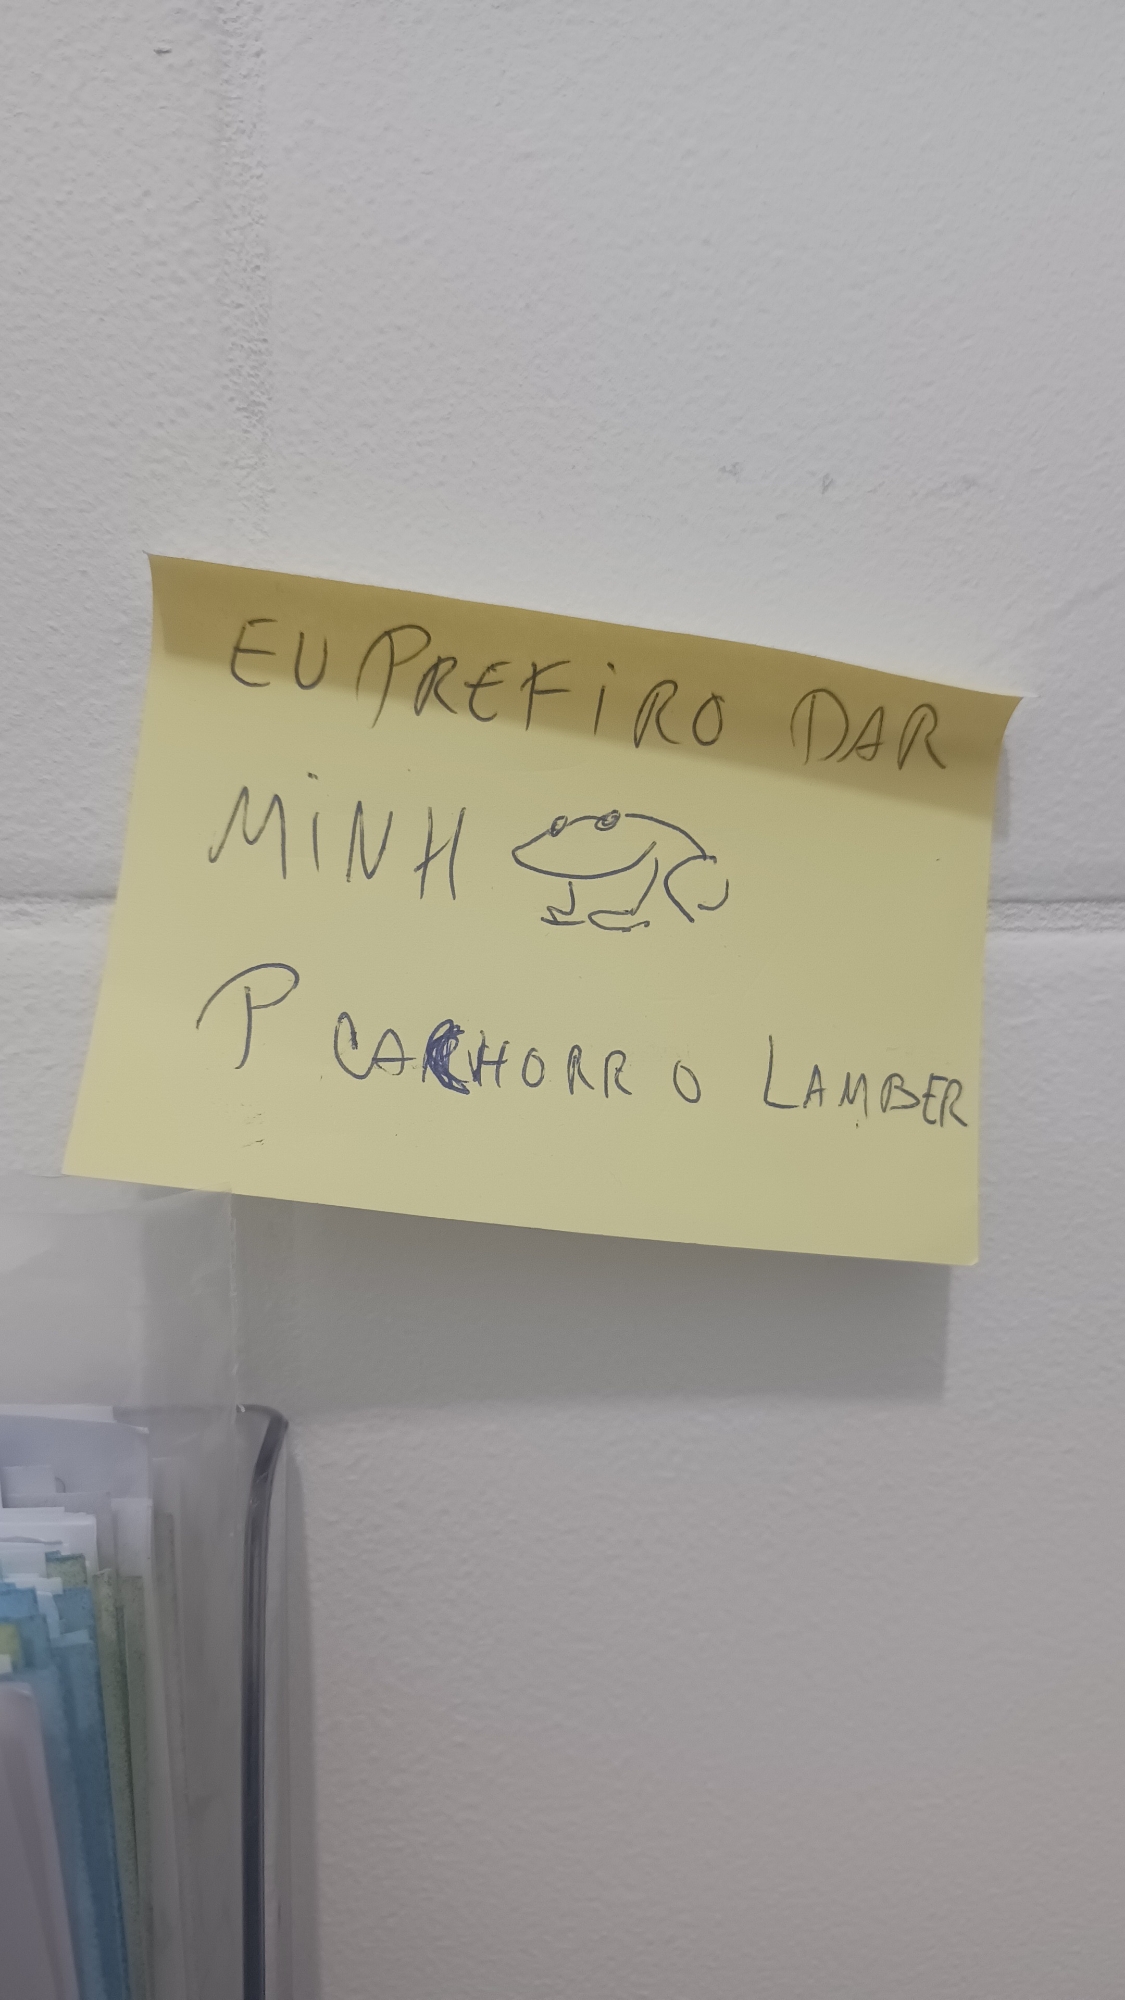 EU PREFIRO DAR
MINH
P CACHORRO LAMBER